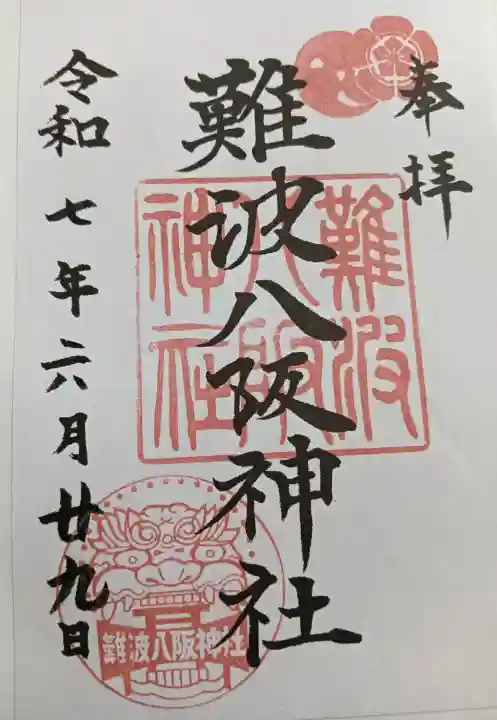 奉拝
難波八阪神社
難波
八阪
神社
難波八阪神社
令和七年六月廿九日